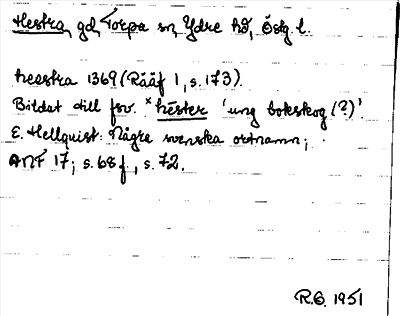 Hestra, gd, Torpa sn, Ydre hd, Östg. l.
heestra 1369 (Rääf 1, s. 173).
Bildat till fsv. *hēster 'ung bokskog (?)'.
E. Hellquist: Några svenska ortnamn;
ANF 17; s. 68 f., s. 72.
R.G. 1951